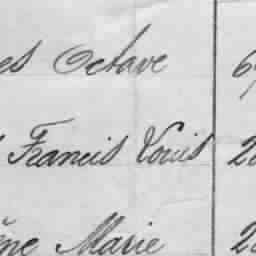 es Octave 6
Francis Louis 2
ne Marie 2